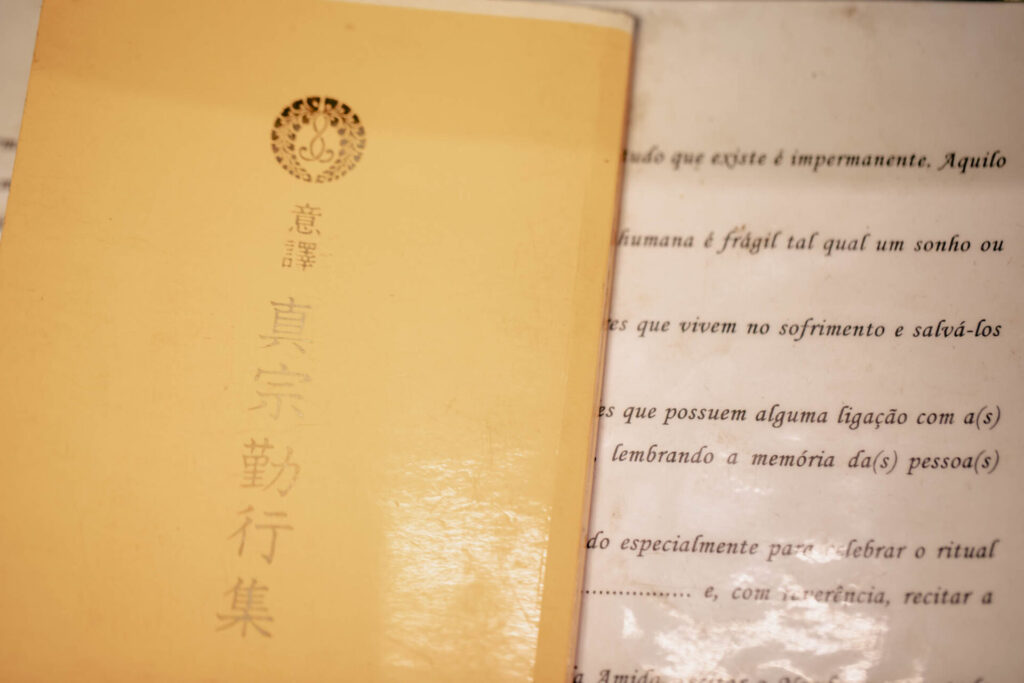 意譯
真宗勤行集
tudo que existe é impermanente. Aquilo
humana é frágil tal qual um sonho ou
que vivem no sofrimento e salvá-los
que possuem alguma ligação com a(s)
lembrando a memória da(s) pessoa(s)
do especialmente para celebrar o ritual
................. e, com reverência, recitar a
Amida